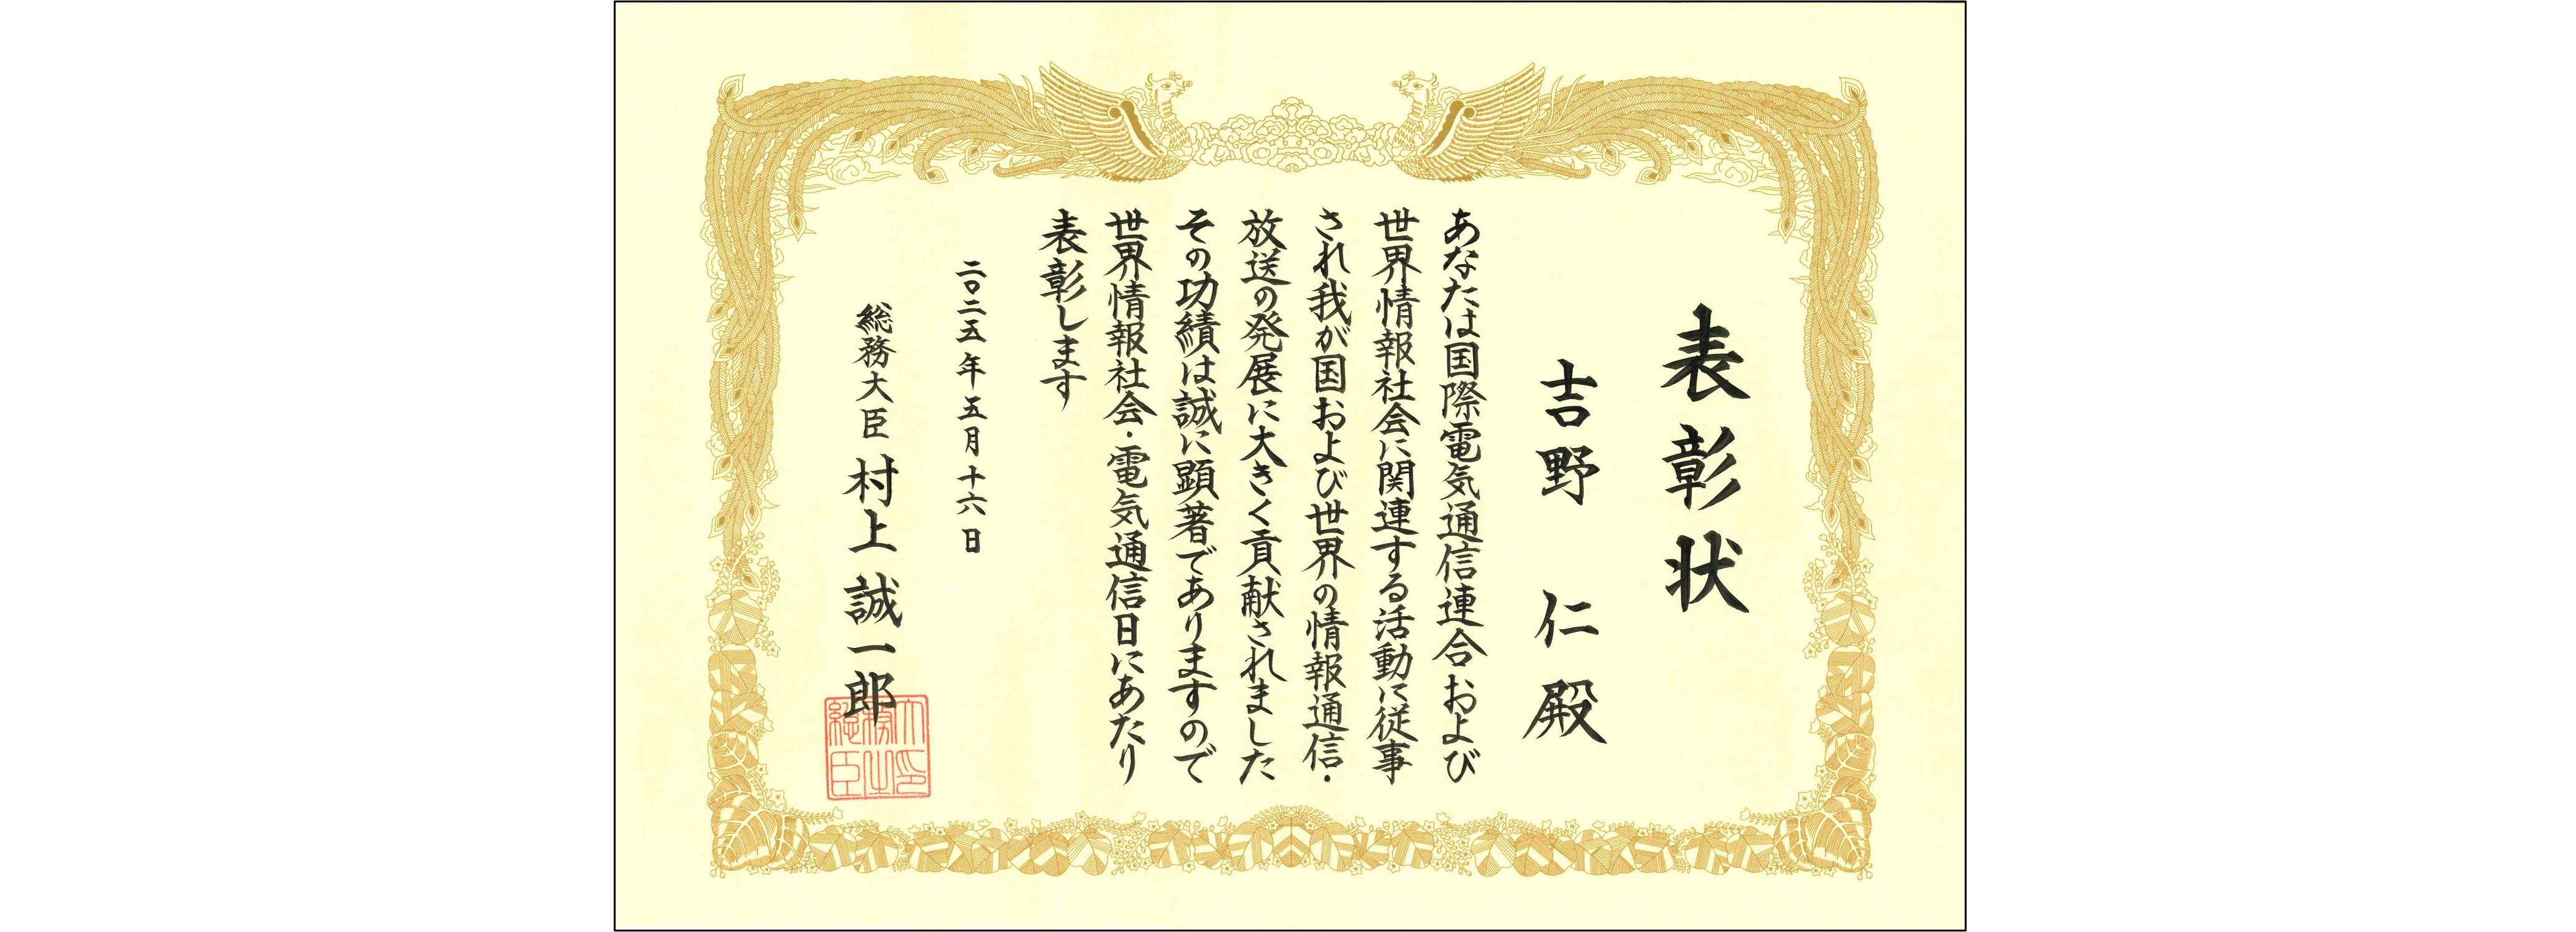 表彰状
吉野 仁 殿
あなたは国際電気通信連合および
世界情報社会に関連する活動に従事
され我が国および世界の情報通信・
放送の発展に大きく貢献されました
その功績は誠に顕著でありますので
世界情報社会・電気通信日にあたり
表彰します
二〇二五年五月十六日
総務大臣 村上誠一郎
総務大臣之印